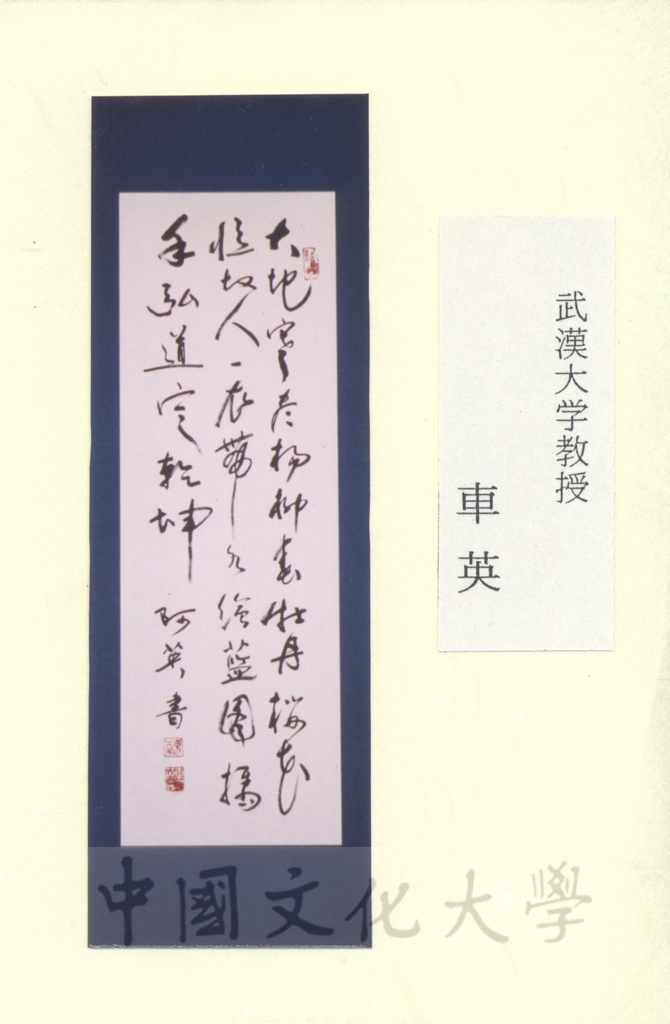 武漢大学教授
車英
大地寒去楊柳春牡丹櫻花
憶故人一衣帶水繪藍圖攜
手弘道定乾坤 阿英書
中國文化大學